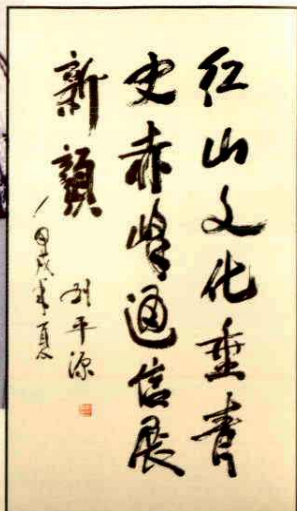 红山文化垂青
史赤峰通信展
新颜
甲戌年夏
刘平源